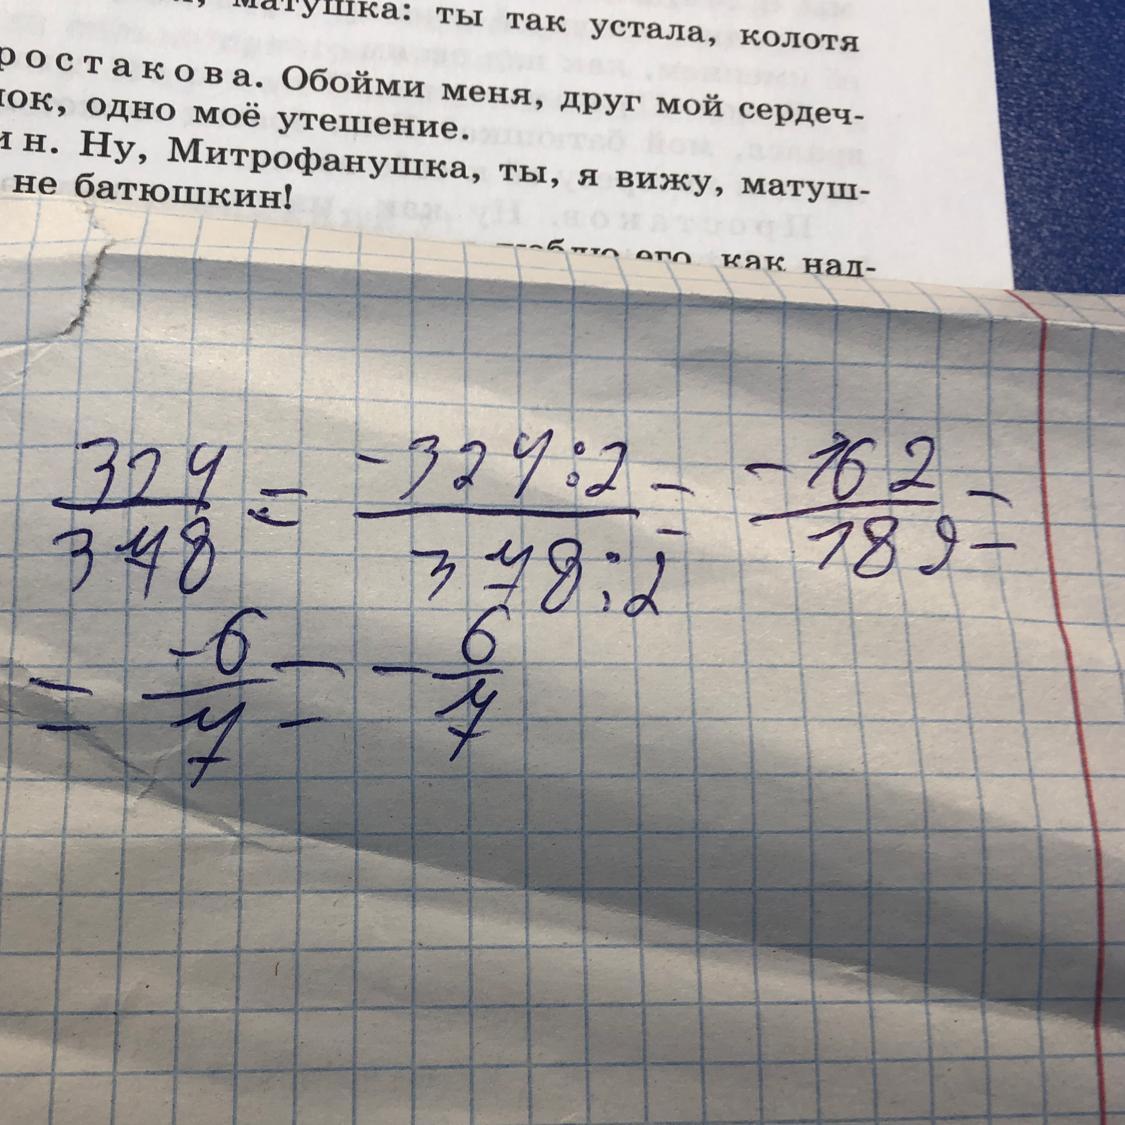 матушка: ты так устала, колотя
ростакова. Обойми меня, друг мой сердеч-
одно моё утешение.
Ну, Митрофанушка, ты, я вижу, матуш-
не батюшкин!
его, как над-
324/378 = -324:2/378:2 = -162/189 =
= -6/7 = -6/7